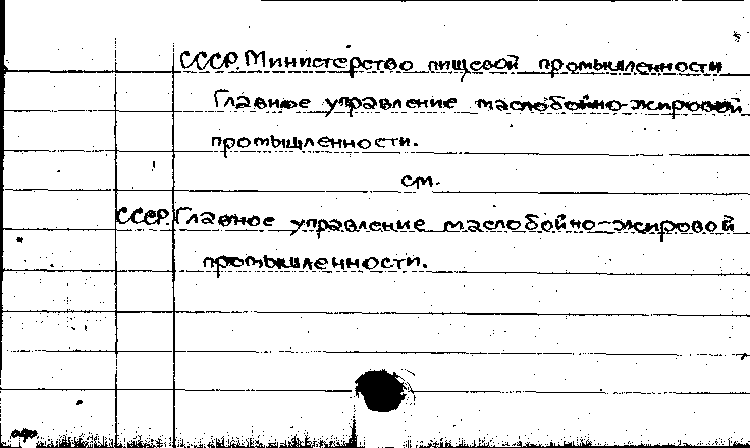 СССР. Министерство пищевой промышленности
Главное управление маслобойно-жировой
промышленности.
см.
СССР. Главное управление маслобойно-жировой
промышленности.